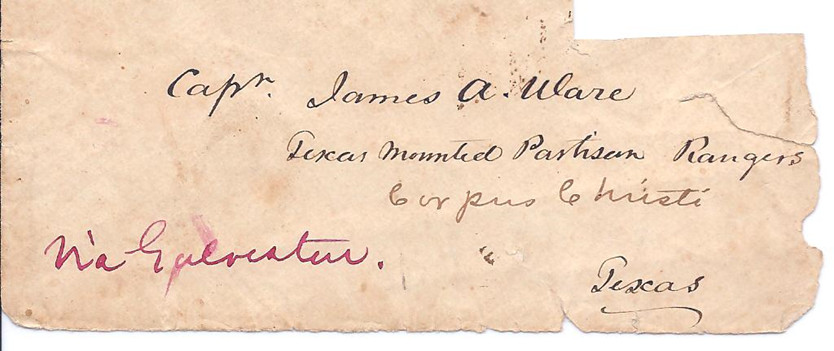 Capn. James A. Ware
Texas Mounted Partisan Rangers
Corpus Christi
Via Galveston.
Texas